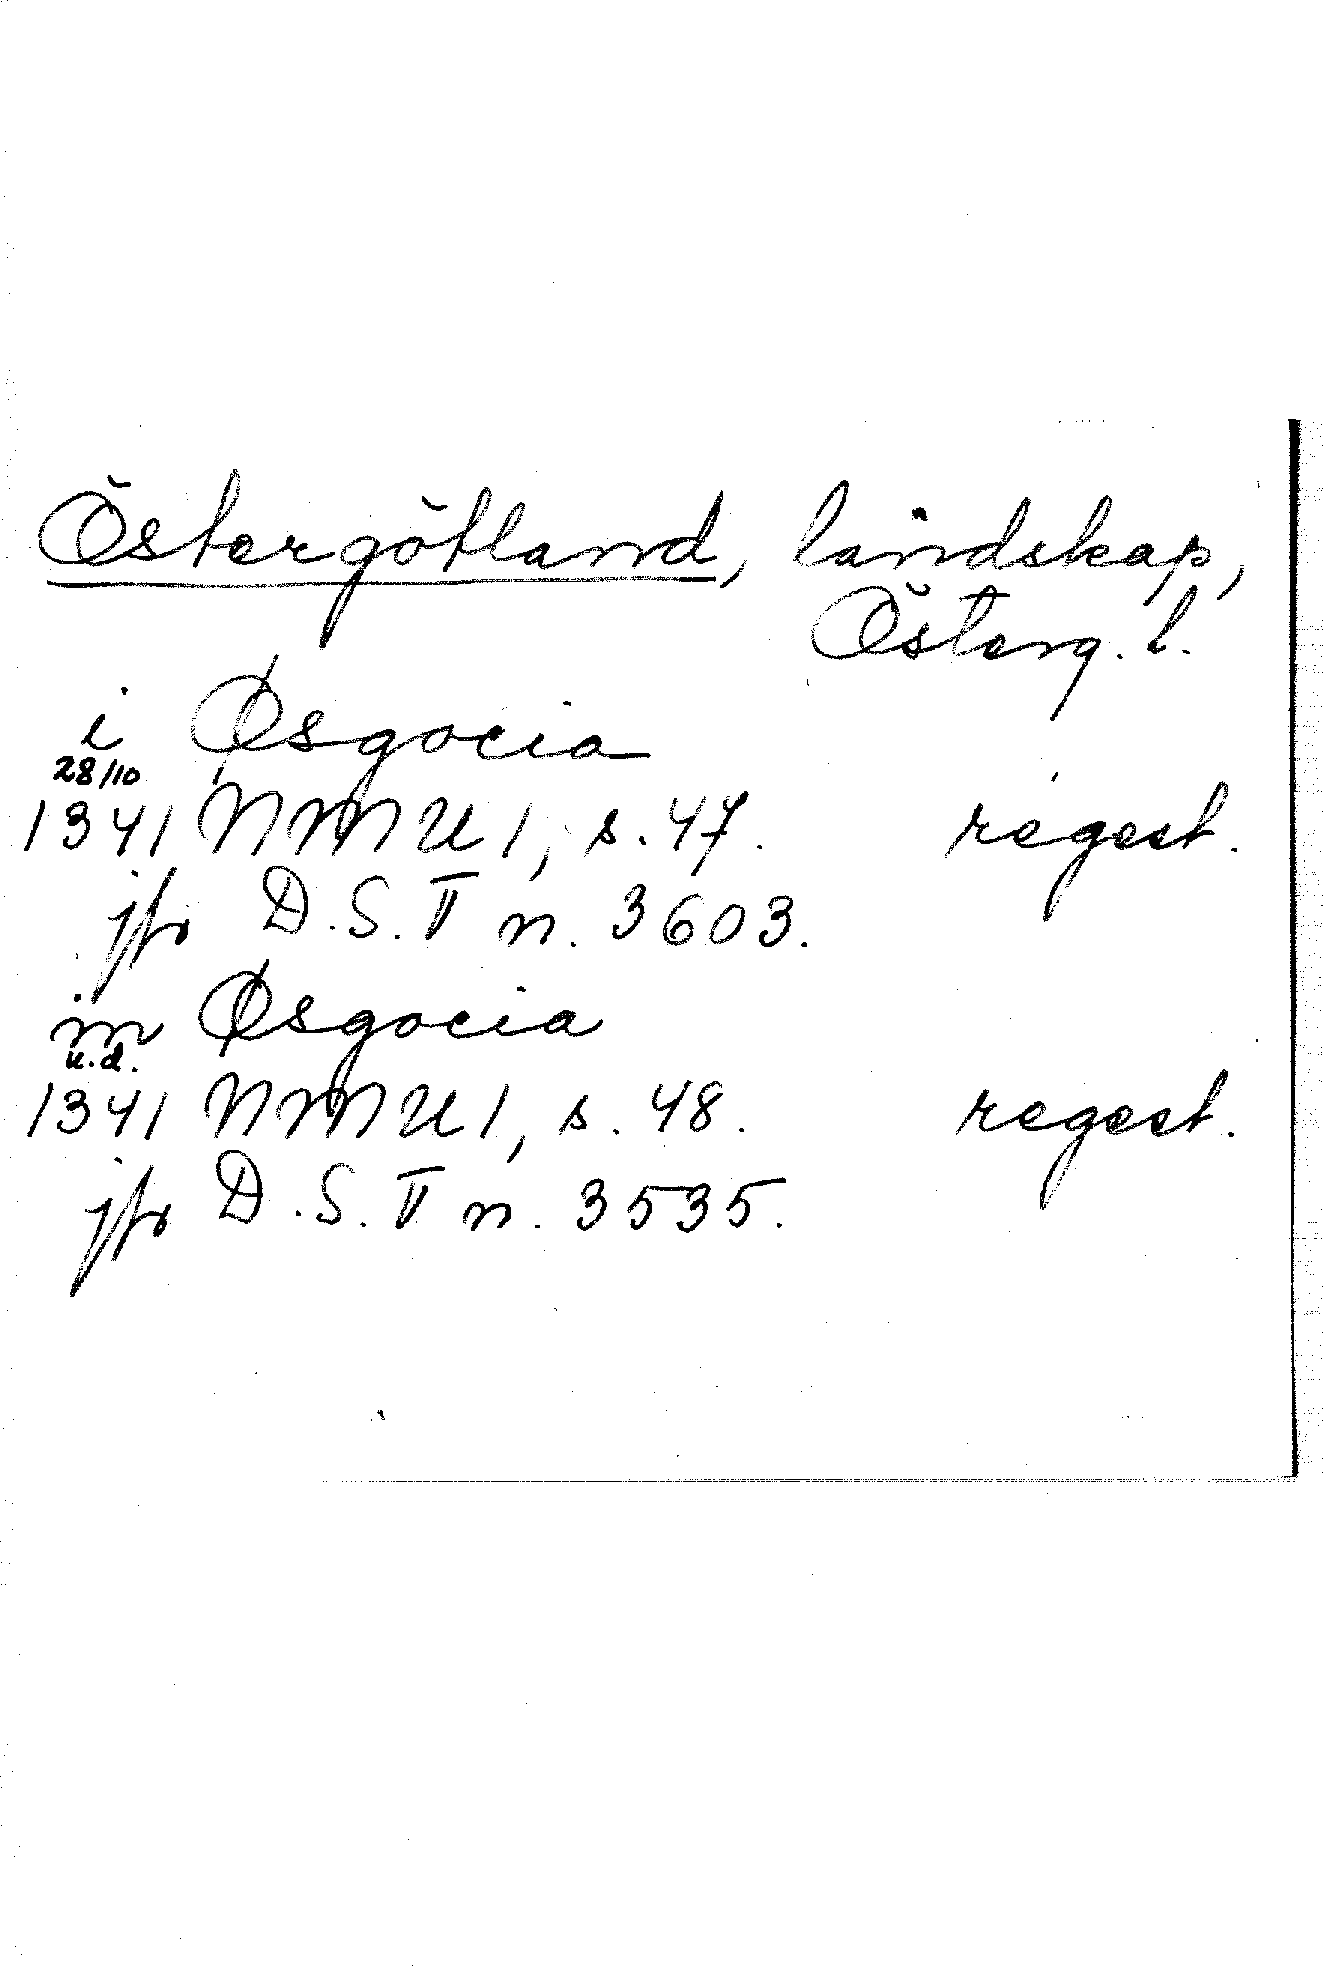 Östergötland, landskap,
Österg. l.
i Øsgocia
28/10
1341 NMU 1, s. 47. regest.
jfr D.S. V n. 3603.
in Øsgocia
u.d.
1341 NMU 1, s. 48. regest.
jfr D.S. V n. 3535.